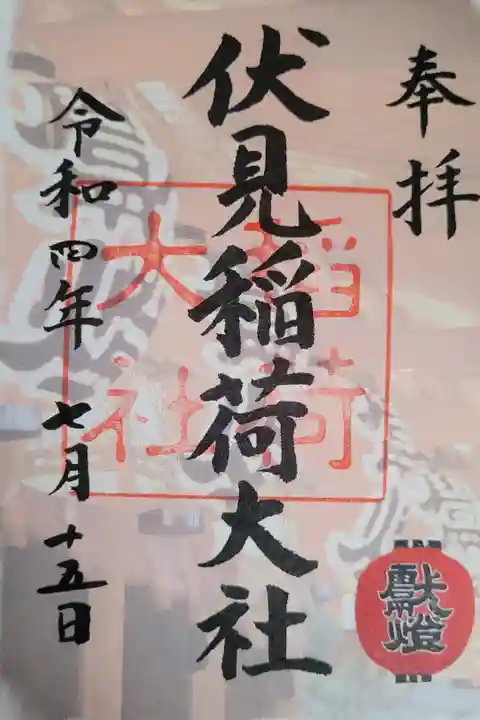 奉拝
伏見稲荷大社
令和四年七月十五日
稲荷
大社
献燈